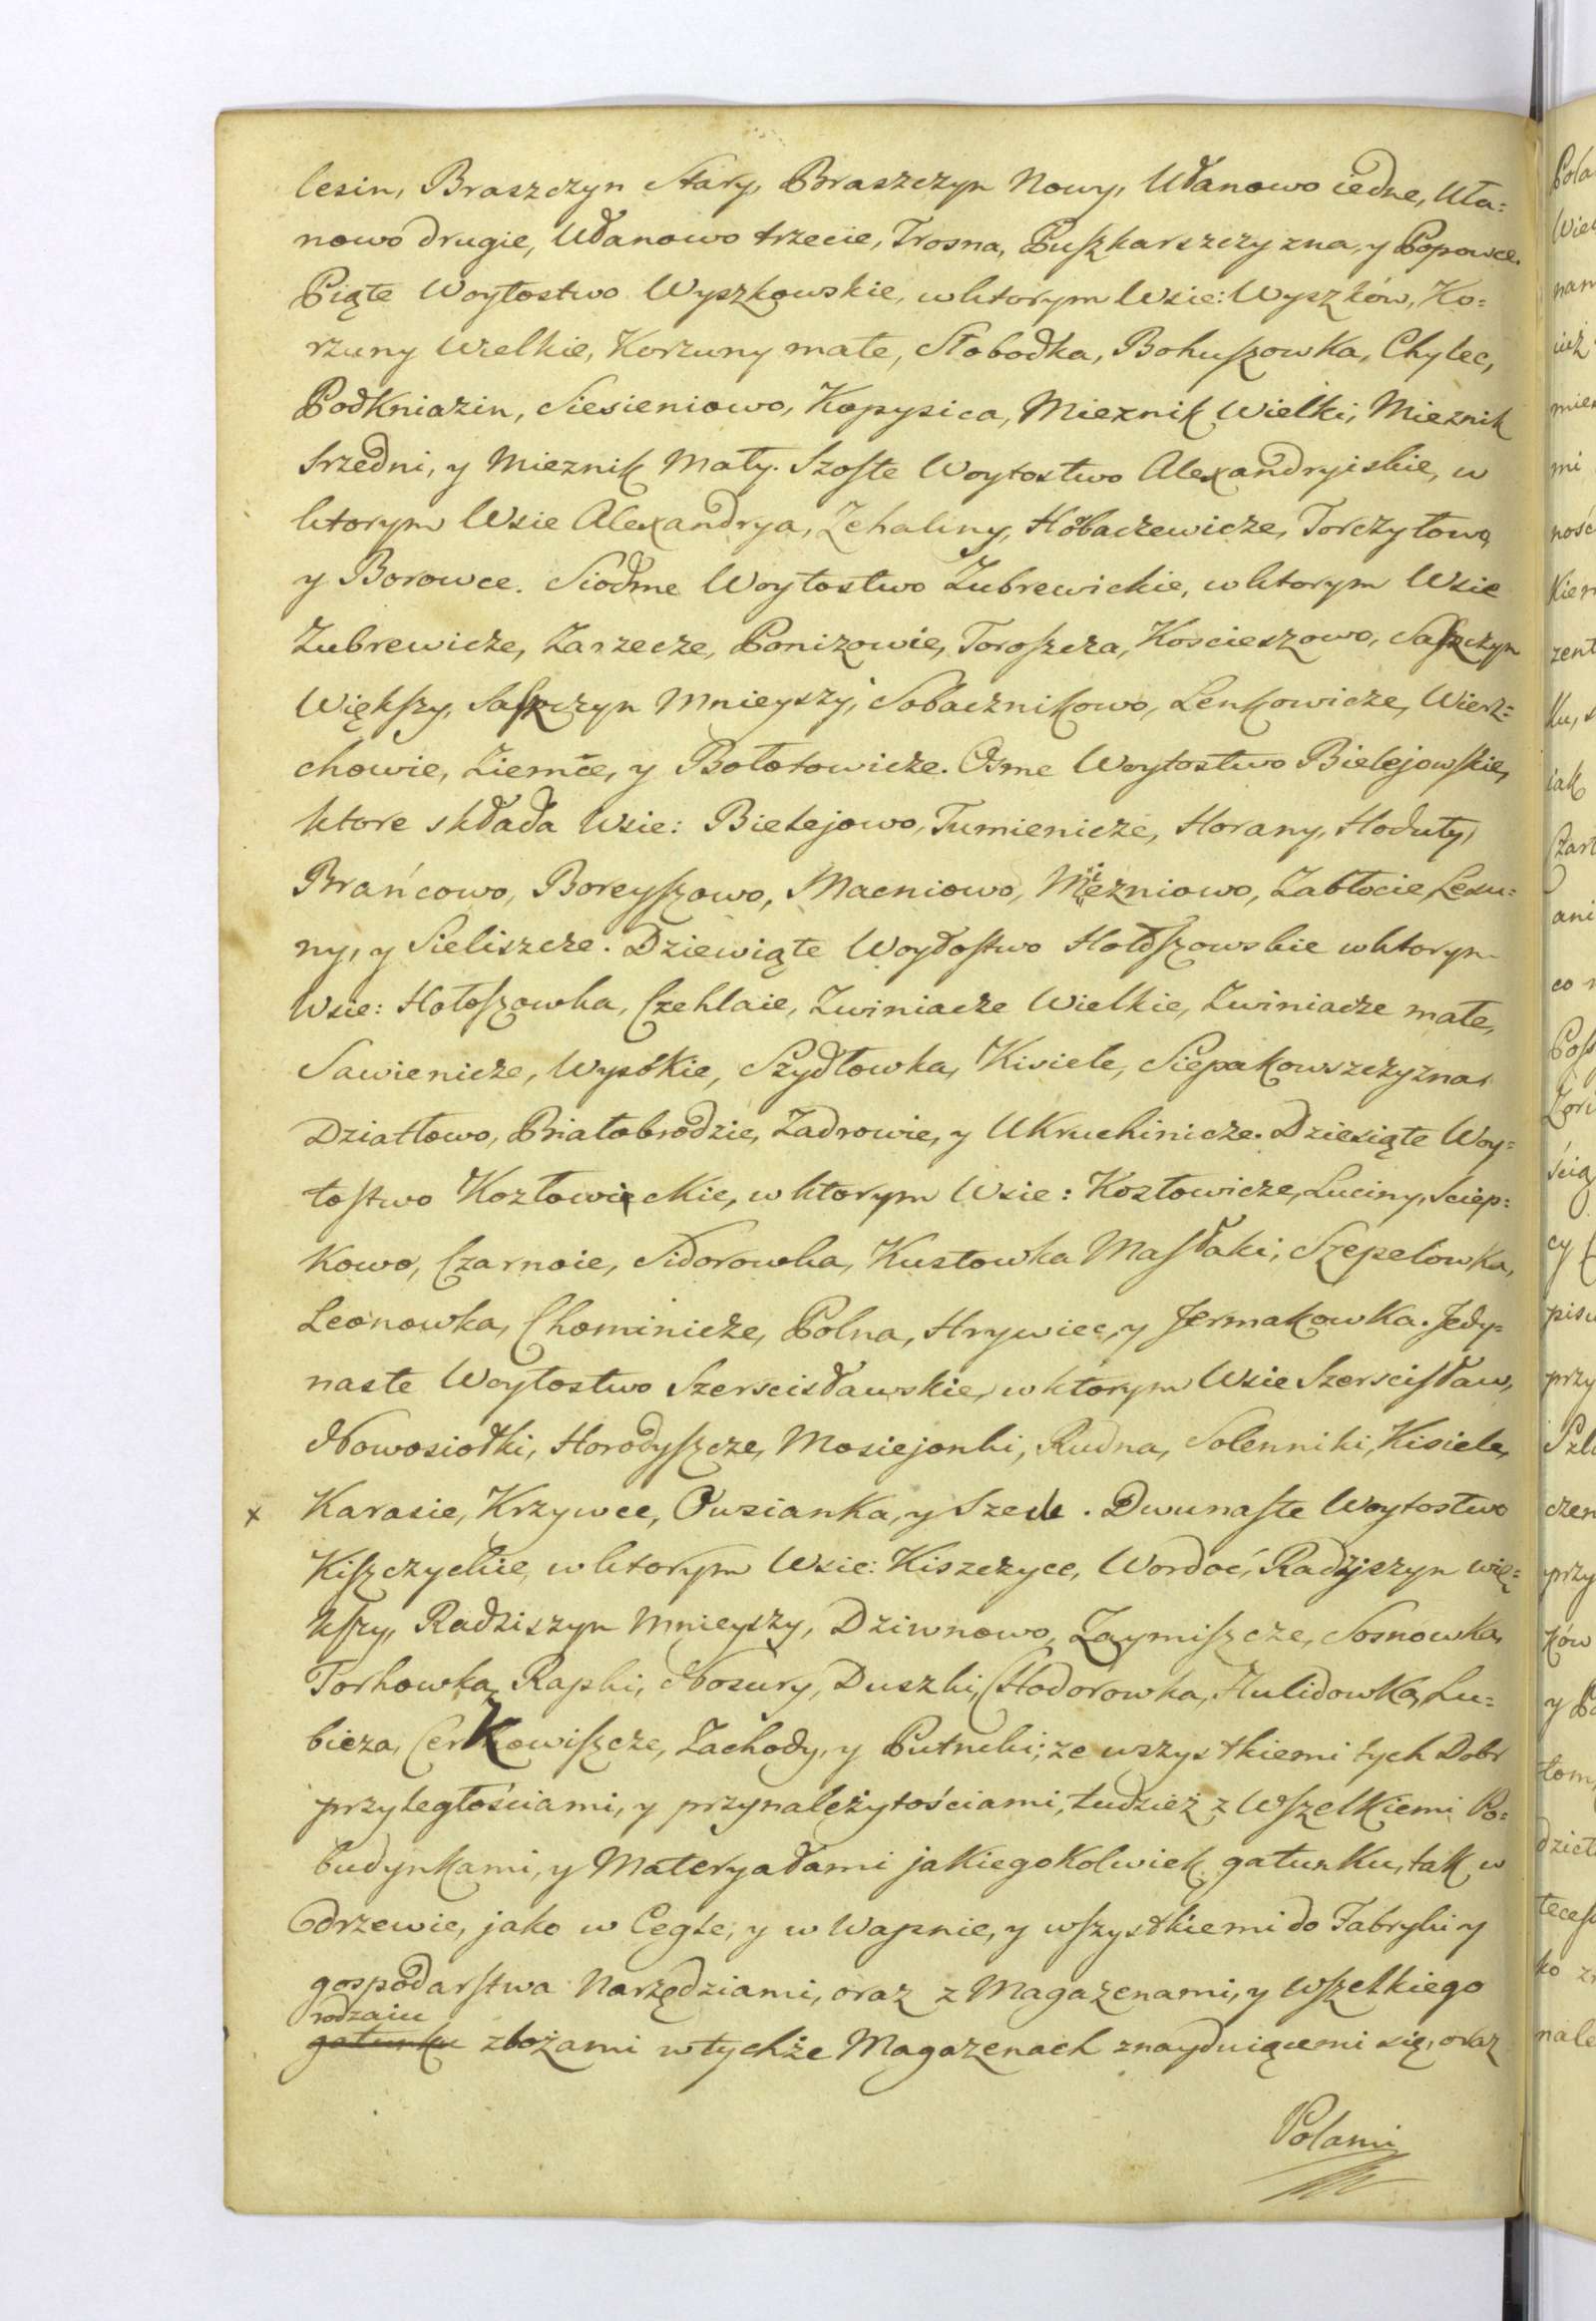 lesin, Braszczyn Stary, Braszczyn Nowy, Ułanowo iedne, Uła=
nowo drugie, Ułanowo trzecie, Trosna, Puszkarszczyzna, y Popowce.
Piąte Woytostwo Wyszkowskie, w ktorym Wsie: Wyszków, Ko=
rzuny Wielkie, Korzuny małe, Słobodka, Bohuszowka, Chylec,
Podkniazin, Siesieniowo, Kopysica, Mieznik Wielki, Mieznik
Srzedni, y Mieznik Mały. Szoste Woytostwo Alexandryiskie, w
ktorym Wsie Alexandrya, Zchaliny, Hobaczewicze, Torczyłowo,
y Borowce. Siodme Woytostwo Zubrewickie, w ktorym Wsie
Zubrewicze, Zarzecze, Ponizowie, Toroszcza, Koscieszowo, Saszczyn
Większy, Saszczyn Mnieyszy, Sobacznikowo, Lenkowicze, Wierz=
chowie, Ziemce, y Bołotowicze. Osme Woytostwo Bielejowskie,
ktore składa Wsie: Bielejowo, Tumienicze, Horany, Hoduty,
Brańcowo, Boreyszowo, Macniowo, Miezniowo, Zabłocie, Lesu=
ny, y Sieliszcze. Dziewiąte Woytostwo Hołoszowskie w ktorym
Wsie: Hołoszowka, Czeklaie, Zwiniacze Wielkie, Zwiniacze małe,
Sawienicze, Wysokie, Szydłowka, Kisiele, Siepakowszczyzna,
Działłowo, Białobrodzie, Zadrowie, y Ukruchinicze. Dziesiąte Woy=
tostwo Kozłowickie, w ktorym Wsie: Kozłowicze, Luciny, Sciep=
kowo, Czarnoie, Sidorowka, Kustowka Masłaki, Szepelowka,
Leonowka, Chominicze, Polna, Hrywiec, y Jermakowka. Jedy=
naste Woytostwo Szerscisławskie, w ktorym Wsie Szerscisław,
Nowosiołki, Horodyszcze, Mosiejonki, Rudna, Solenniki, Kisiele,
x Karasie, Krzywce, Owsianka, y Szeck. Dwunaste Woytostwo
Kiszczyckie, w ktorym Wsie: Kiszczyce, Wordoć, Radziszyn wię=
kszy, Radziszyn Mnieyszy, Dziwnowo, Zaymiszcze, Sosnowka,
Torhowka, Rapki, Nosury, Duszki, Chodorowka, Hulidowka, Lu=
bieza, Cerkowiszcze, Zachody, y Putniki; ze wszystkiemi tych Dobr
przyległościami, y przynależytościami, tudzież z Wszelkiemi Po=
budynkami, y Materyałami jakiegokolwiek gatunku, tak w
drzewie, jako w Cegle, y w Wapnie, y wszystkiemi do Fabryki y
gospodarstwa Narzędziami, oraz z Magazenami, y Wszelkiego
rodzaiu
gatunku zbożami w tychże Magazenach znayduiącemi się, oraz
Polami